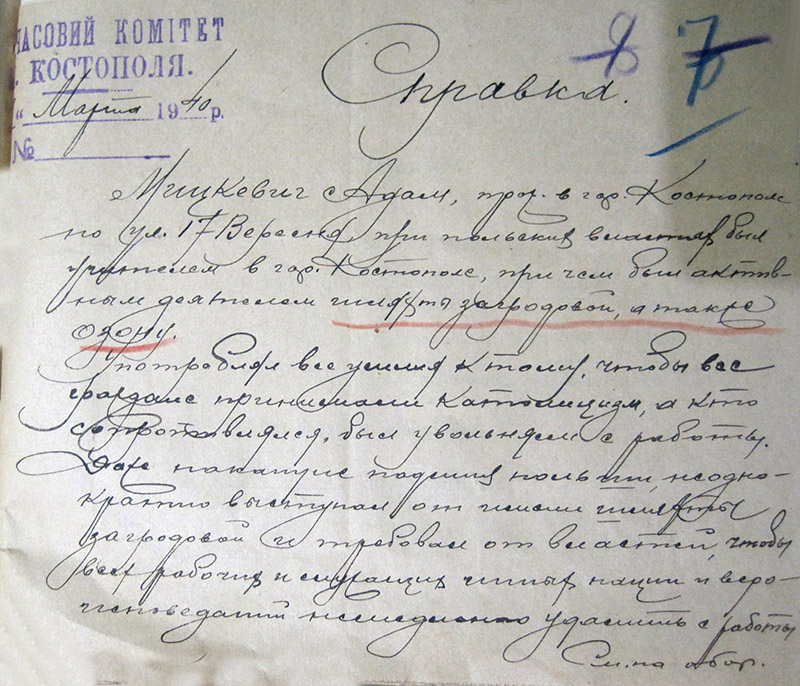 ЧАСОВИЙ КОМІТЕТ
. КОСТОПОЛЯ.
" Марта 1940 р.
№
8 7
Справка.
Мицкевич с Адам, прож. в гор. Костополе
по ул. 17 Вересня, при польских властях был
учителем в гор. Костополе, при чем был актив-
ным деятелем шляхты загродовой, а также
озону.
потреблял все усилия к тому, чтобы все
граждане принимали католицизм, а кто
сопротивлялся, был увольняем с работы.
Даже накануне падения польши, неодно-
кратно выступал от имени шляхты
загродовой и требовал от властей, чтобы
всех рабочих и служащих иных наций и веро-
исповеданий немедленно удалить с работы
См. на обор.